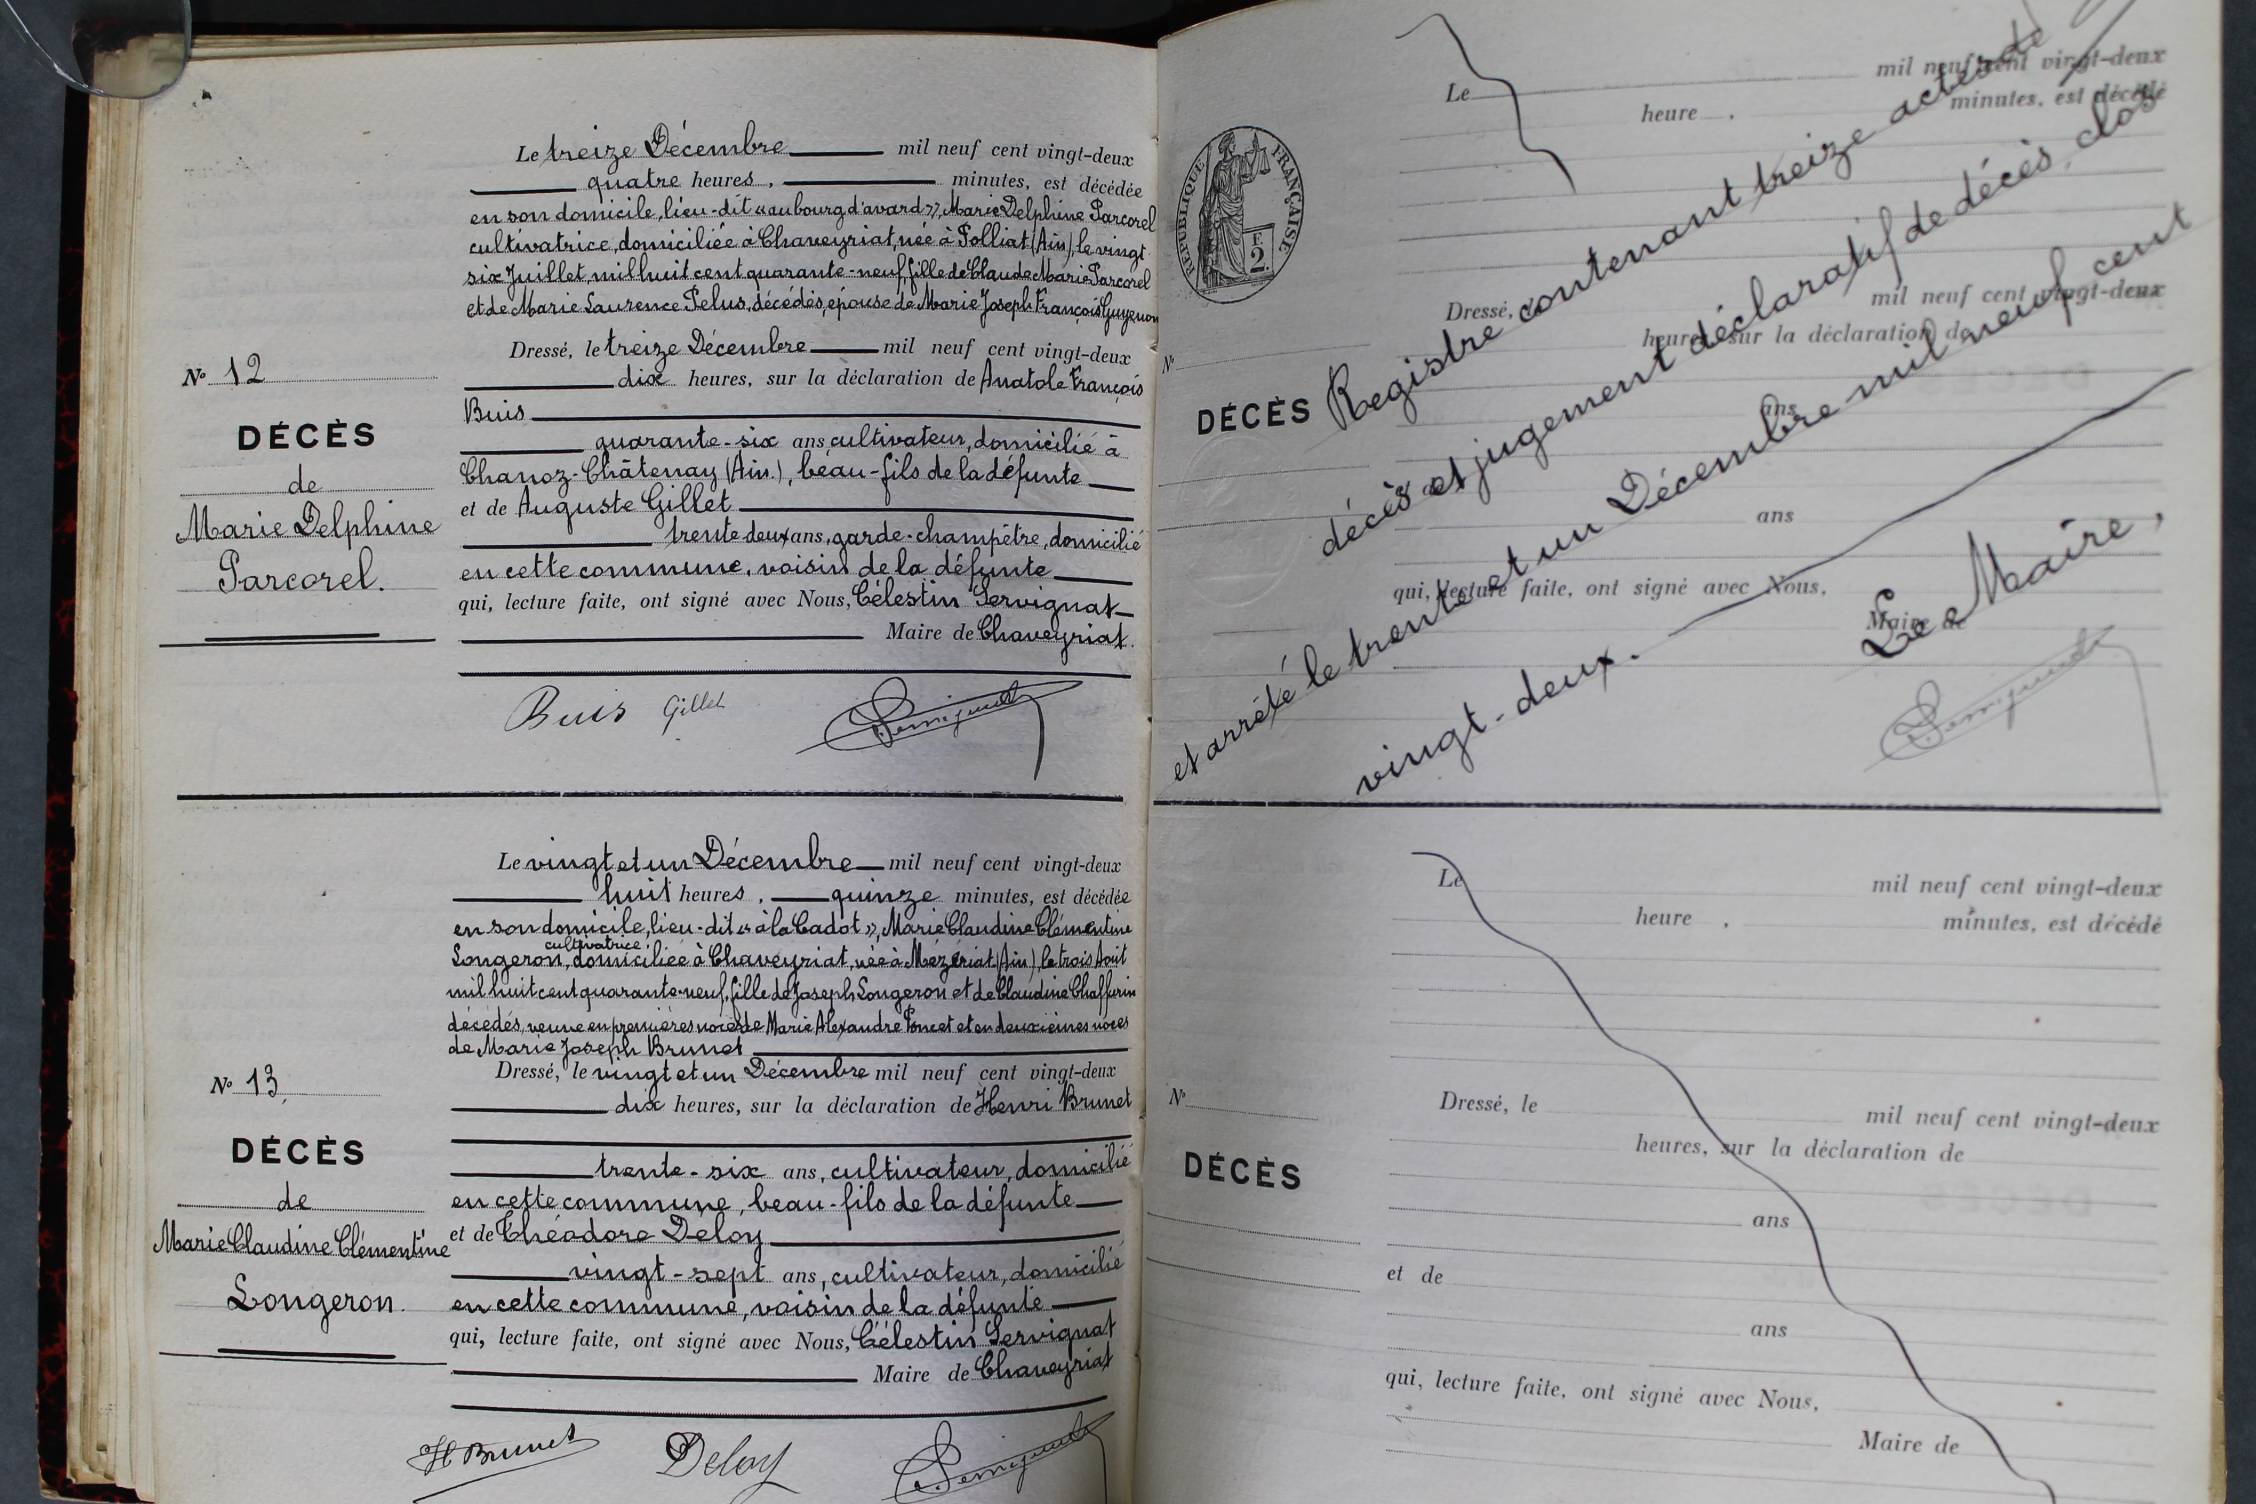 Le treize Décembre mil neuf cent vingt-deux
quatre heures, minutes, est décédée
en son domicile, lieu-dit «au bourg d'avard», Marie Delphine Parcorel
cultivatrice, domiciliée à Chaveyriat, née à Polliat (Ain), le vingt
six Juillet, mil huit cent quarante-neuf, fille de Claude Marie Parcorel
et de Marie Laurence Pelus, décédés, épouse de Marie Joseph François Guyenon
Dressé, le treize Décembre mil neuf cent vingt-deux
dix heures, sur la déclaration de Anatole François
Buis
quarante-six ans, cultivateur, domicilié à
Chanoz-Châtenay (Ain.), beau-fils de la défunte
et de Auguste Gillet
trente deux ans, garde-champêtre, domicilié
en cette commune, voisin de la défunte
qui, lecture faite, ont signé avec Nous, Célestin Servignat
Maire de Chaveyriat.
N° 12
DÉCÈS
de
Marie Delphine
Parcorel.
Buis Gillet Servignat
Le vingt et un Décembre mil neuf cent vingt-deux
huit heures, quinze minutes, est décédée
en son domicile, lieu-dit «à la Cadot», Marie Claudine Clémentine
cultivatrice,
Longeron, domiciliée à Chaveyriat, née à Mézériat (Ain), le trois Août
mil huit cent quarante-neuf, fille de Joseph Longeron et de Claudine Chaffurin
décédés, veuve en premières noces de Marie Alexandre Poncet et en deuxièmes noces
de Marie Joseph Brunet
Dressé, le vingt et un Décembre mil neuf cent vingt-deux
dix heures, sur la déclaration de Henri Brunet
trente-six ans, cultivateur, domicilié
en cette commune, beau-fils de la défunte
et de Théodore Deloy
vingt-sept ans, cultivateur, domicilié
en cette commune, voisin de la défunte
qui, lecture faite, ont signé avec Nous, Célestin Servignat
Maire de Chaveyriat
N° 13
DÉCÈS
de
Marie Claudine Clémentine
Longeron.
H Brunet Deloy Servignat
Le mil neuf cent vingt-deux
heure , minutes, est décédé
RÉPUBLIQUE FRANÇAISE
F.
2.
Dressé, mil neuf cent vingt-deux
heures, sur la déclaration de
N°
DÉCÈS
ans
ans
qui, lecture faite, ont signé avec Nous,
Maire de
Registre contenant treize actes de
décès et jugement déclaratif de décès, clos
et arrêté le trente et un Décembre mil neuf cent
vingt-deux.
Le Maire,
Servignat
Le mil neuf cent vingt-deux
heure , minutes, est décédé
Dressé, le mil neuf cent vingt-deux
heures, sur la déclaration de
N°
DÉCÈS
ans
et de
ans
qui, lecture faite, ont signé avec Nous,
Maire de